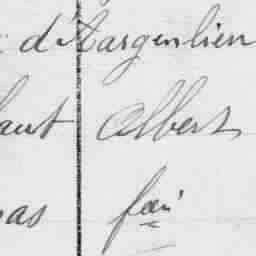 d'Hargenlieu
haut Albert
pas fai